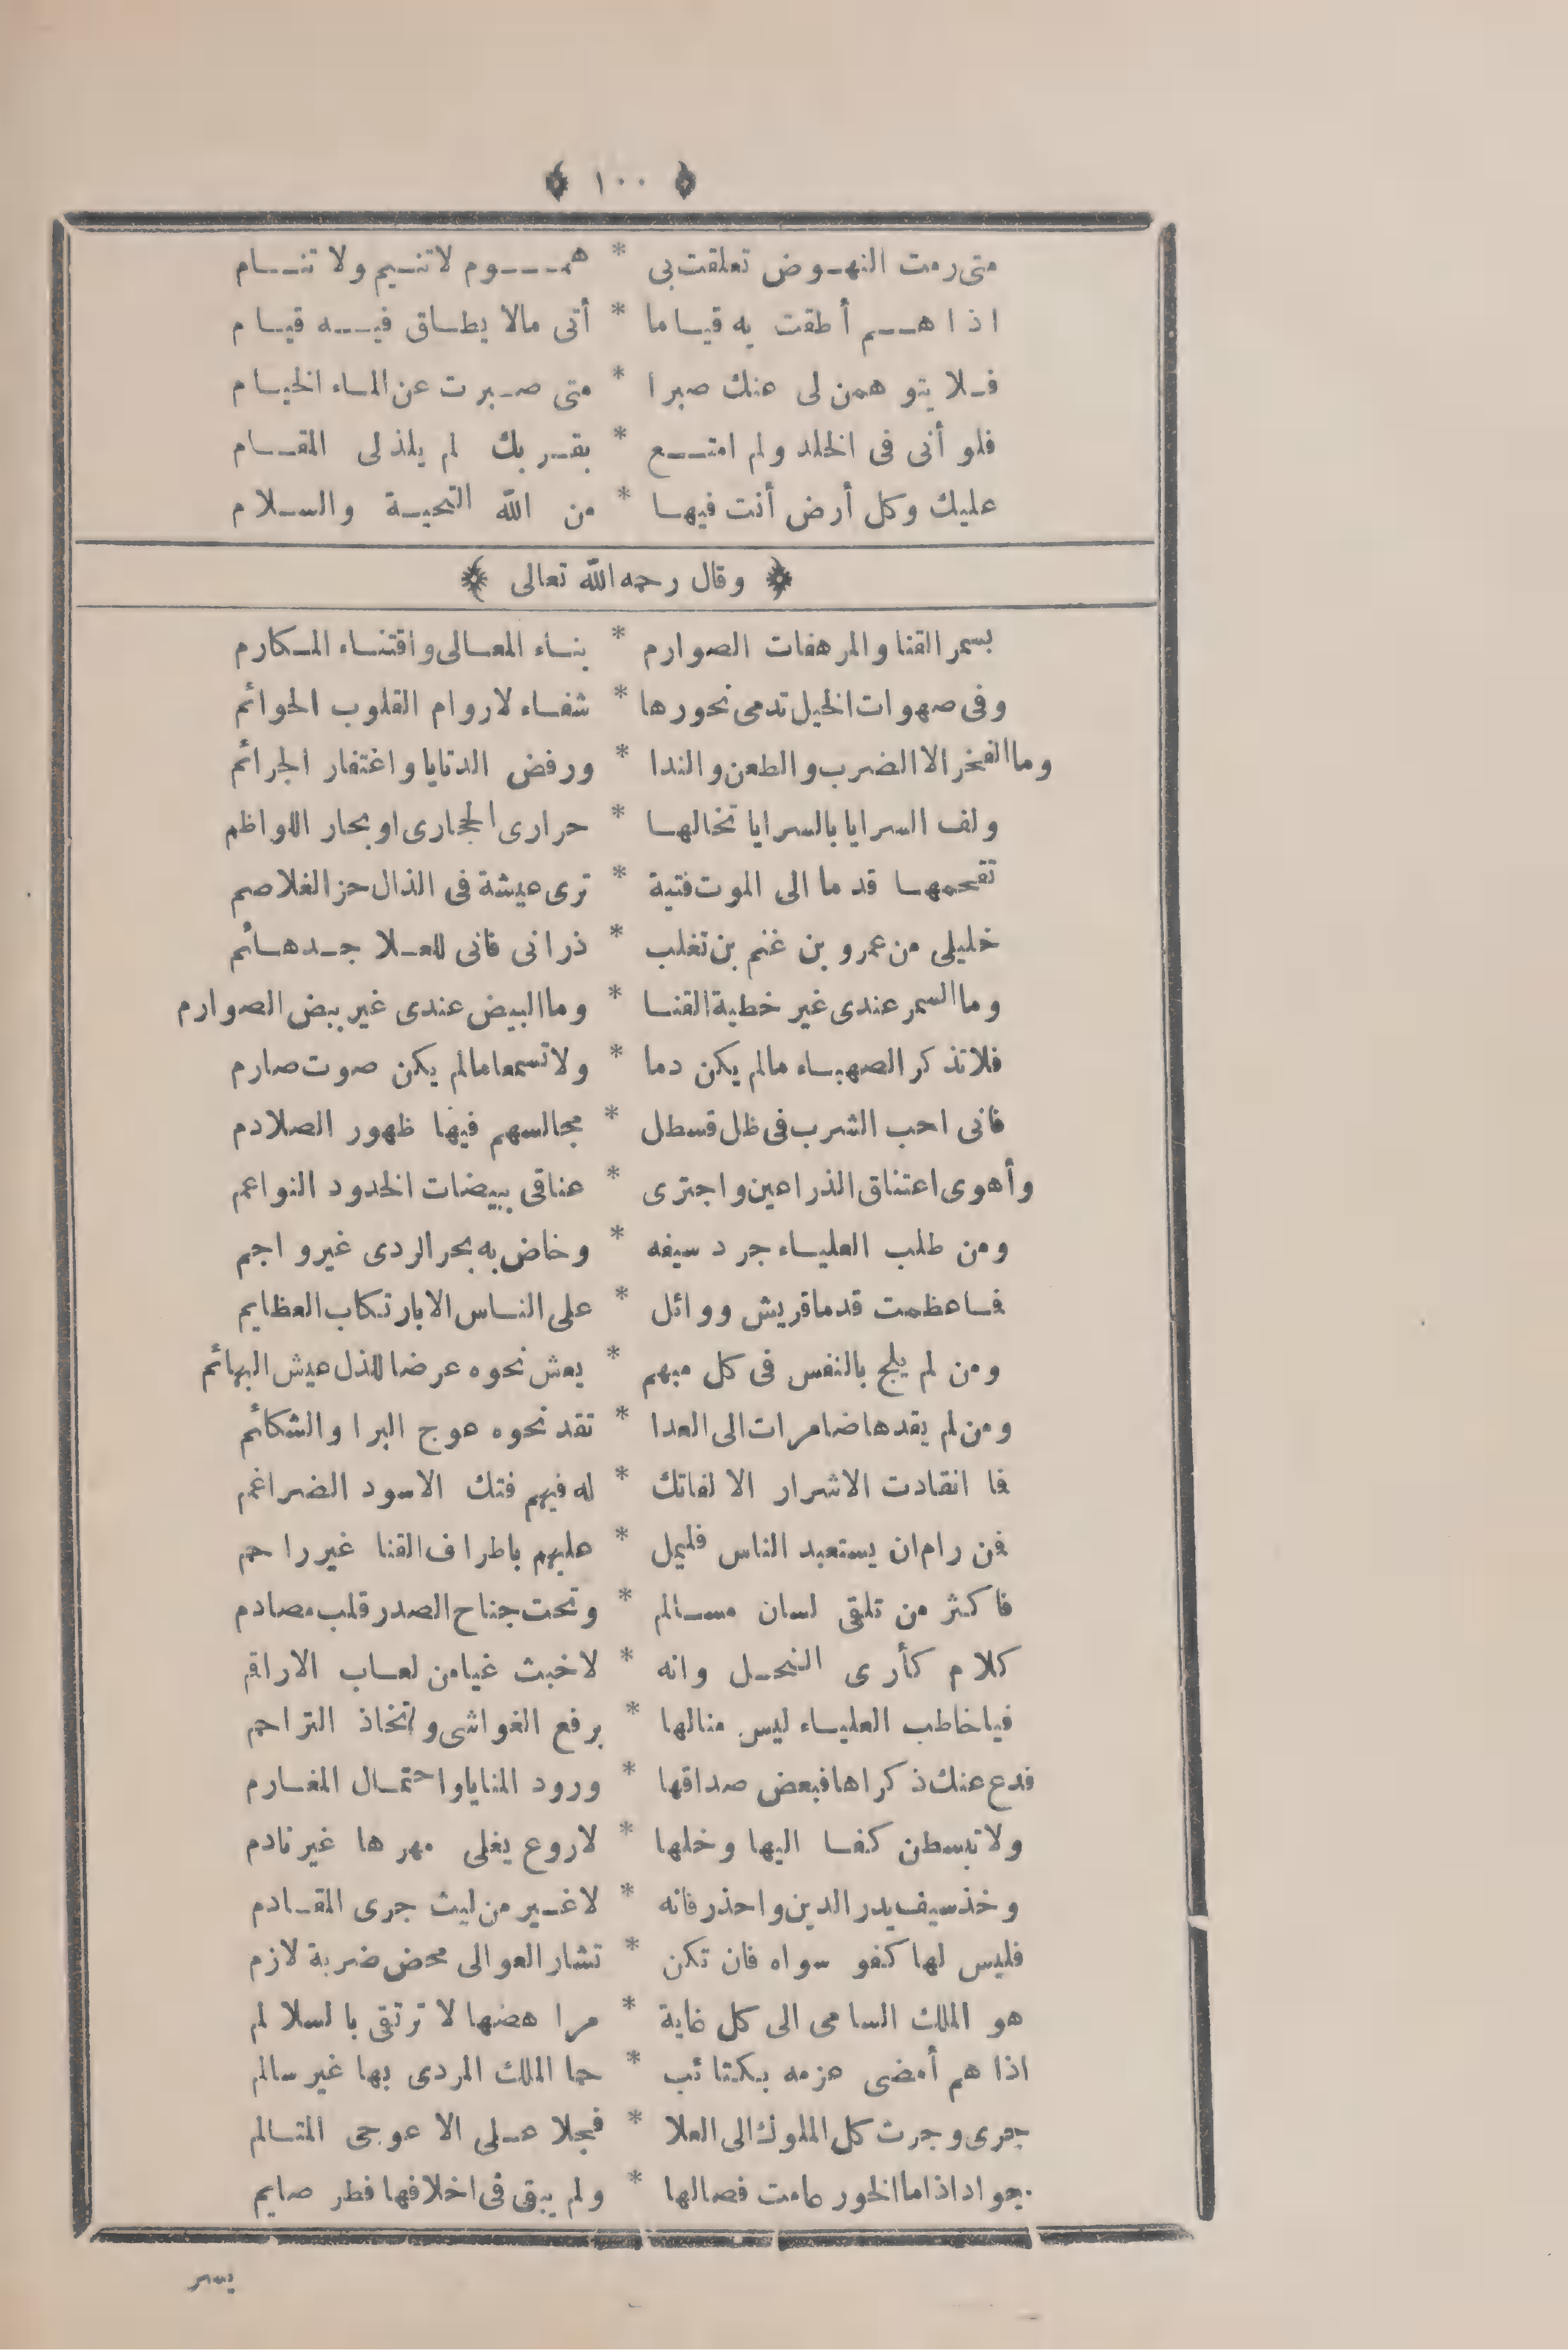 ﴿ ١٠٠ ﴾
متى رمت النهوض تعلقت بى * هموم لاتنيم ولا تنام
اذا هم أطقت به قياما * أتى مالا يطاق فيه قيام
فلا يتوهمن لى عنك صبرا * متى صبرت عن الماء الخيام
فلو أنى فى الخلد ولم امتع * بقربك لم يلذ لى المقام
عليك وكل أرض أنت فيها * من الله التحية والسلام
﴿ وقال رحمه الله تعالى ﴾
بسمر القنا والمرهفات الصوارم * بناء المعالى واقتناء المكارم
وفى صهوات الخيل تدمى نحورها * شفاء لاروام القلوب الحوائم
وما الفخر الا الضرب والطعن والندا * ورفض الدنايا واغتفار الجرائم
ولف السرايا بالسرايا تخالها * حرارى الحجارى او بحار اللواظم
تقحمها قدما الى الموت فتية * ترى عيشة فى الذال حز الغلاصم
خليلى من عمرو بن غنم بن تغلب * ذرانى فانى للعلا جد هائم
وما السمر عندى غير خطية القنا * وما البيض عندى غير بيض الصوارم
فلا تذكر الصهباء مالم يكن دما * ولا تسمعا مالم يكن صوت صارم
فانى احب الشرب فى ظل قسطل * مجالسهم فيها ظهور الصلادم
وأهوى اعتناق الذراعين واجتزى * عناقى ببيضات الخدود النواعم
ومن طلب العلياء جرد سيفه * وخاض به بحر الردى غير واجم
فما عظمت قدما قريش ووائل * على الناس الا بارتكاب العظايم
ومن لم يلج بالنفس فى كل مبهم * يعش نحوه عرضا للذل عيش البهائم
ومن لم يقدها ضامرات الى العدا * تقد نحوه هوج البرا والشكائم
فما انقادت الاشرار الا لفاتك * له فيهم فتك الاسود الضراغم
فمن رام ان يستعبد الناس فليمل * عليهم باطراف القنا غير راحم
فما كثر من تلقى لسان مسالم * وتحت جناح الصدر قلب مصادم
كلام كأرى النحل وانه * لاخبث غيا من لعاب الاراقم
فيا خاطب العلياء ليس منالها * برفع الغواشى واتخاذ التراحم
فدع عنك ذكراها فبعض صداقها * ورود المنايا واحتمال المغارم
ولا تبسطن كفا اليها وخلها * لاروع يغلى مهرها غير نادم
وخذ سيف بدر الدين واحذر فانه * لاغير من ليث جرى المقادم
فليس لها كفو سواه فان تكن * تشار العوالى محض ضربة لازم
هو الملك السامى الى كل غاية * مراهضها لا ترتقى بالسلالم
اذا هم أمضى عزمه بكتائب * حما الملك المردى بها غير سالم
جرى وجرت كل الملوك الى العلا * فجلا على الاعوجى المتالم
جواد اذا ما الخور مامت فصالها * ولم يبق فى اخلافها فطر صايم
يسر